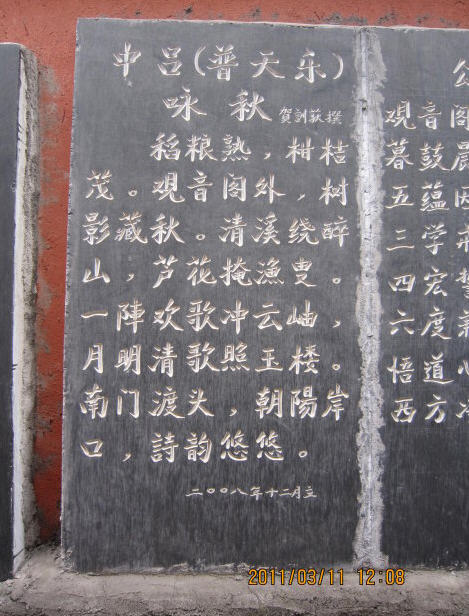 中吕(普天乐)
咏秋 賀訓荻撰
稻粮熟，柑桔
茂。观音阁外，树
影藏秋。清溪绕醉
山，芦花掩漁叟。
一陣欢歌冲云岫，
月明清歌照玉楼。
南门渡头，朝陽岸
口，詩韵悠悠。
二〇〇八年十二月立
观音阁
暮鼓晨
五蕴
三学
四宏
六度
悟道心
西方
2011/03/11 12:08